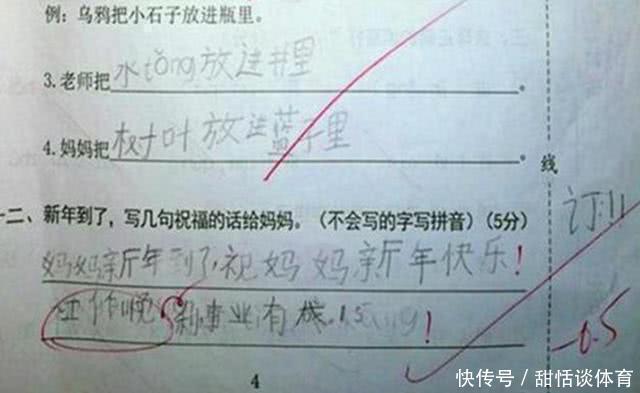 例：乌鸦把小石子放进瓶里。
3.老师把水tǒng放进井里。
4.妈妈把树叶放进蓝子里。
二、新年到了，写几句祝福的话给妈妈。（不会写的字写拼音）(5分)
妈妈新年到了,祝妈妈新年快乐!
工作 事业有成!
4
线
订
-0.5
快传号 / 甜恬谈体育